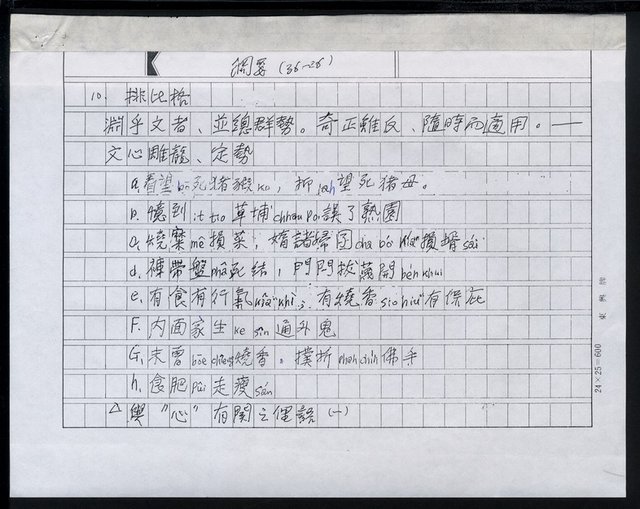 綱要 (36-26)
10. 排比格
淵乎文者、並總群勢。奇正雖反、隨時而適用。——
文心雕龍、定勢
a. 看望 bō 死猪哥 ko, 抑 iah 望死猪母。
b. 憶到 it tio 草埔 chháu po͘ 誤了熟園
c. 燒糜 mê 損菜, 婿諸婦囝 cha bó͘ kiáⁿ 損婿 sái
d. 褲帶盤 phoâ 死結, 門閂拔 開 bén khui
e. 有食有行氣 kiâⁿ khì; 有燒香 sio hiuⁿ 有保庇
F. 內面家生 ke sin 通外鬼
G. 未曾 bōe chêng 燒香, 撲折 chih 佛手
h. 食肥 pûi 走瘦 sán
△ 與 "心" 有關之俚諺 (一)
24×25=600